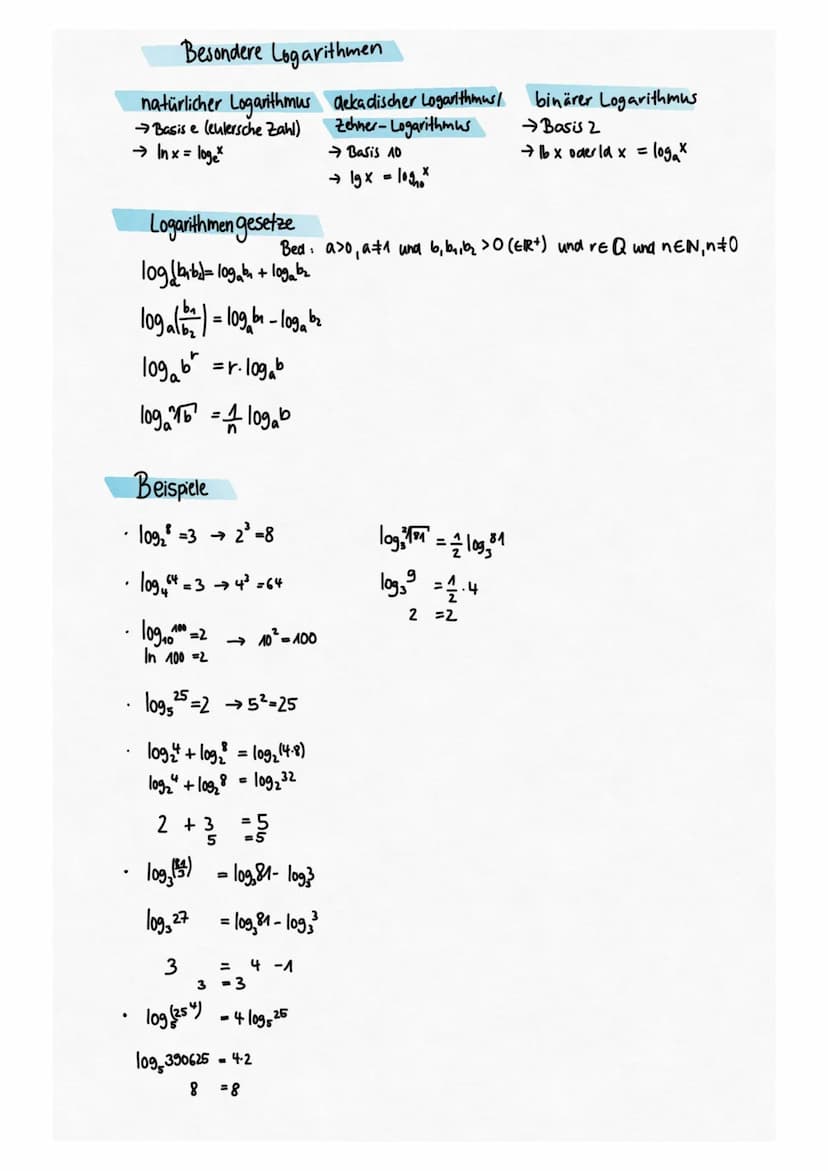 Besondere Logarithmen
natürlicher Logarithmus
→ Basis e (eulersche Zahl)
→ ln x = logₑx
dekadischer Logarithmus/
Zehner-Logarithmus
→ Basis 10
→ lg x = log₁₀x
binärer Logarithmus
→ Basis 2
→ lb x oder ld x = logₐx
Logarithmengesetze
Bed: a>0, a≠1 und b, b₁, b₂ >0 (∈R⁺) und r∈Q und n∈N, n≠0
logₐ(b₁·b₂) = logₐb₁ + logₐb₂
logₐ(b₁/b₂) = logₐb₁ - logₐb₂
logₐbʳ = r·logₐb
logₐⁿ√b = 1/n logₐb
Beispiele
· log₂8 = 3 → 2³ = 8
· log₄64 = 3 → 4³ = 64
· log₁₀100 = 2 → 10² = 100
ln 100 = 2
· log₅25 = 2 → 5² = 25
· log₂4 + log₂8 = log₂(4·8)
log₂4 + log₂8 = log₂32
2 + 3 = 5
5 = 5
· log₃(81/3) = log₃81 - log₃3
log₃27 = log₃81 - log₃3
3 = 4 - 1
3 = 3
· log₅(25⁴) = 4 log₅25
log₅390625 = 4·2
8 = 8
log₃²√81 = 1/2 log₃81
log₃9 = 1/2 · 4
2 = 2